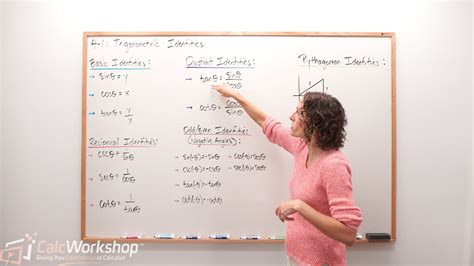 4-1: Trigonometric Identities
Basic Identities:
→ sinθ = y
→ cosθ = x
→ tanθ = y/x
Reciprocal Identities:
→ cscθ = 1/sinθ
→ secθ = 1/cosθ
→ cotθ = 1/tanθ
Quotient Identities:
→ tanθ = sinθ/cosθ
→ cotθ = cosθ/sinθ
Odd/Even Identities:
(Negative Angles)
→ sin(-θ) = -sinθ
→ cos(-θ) = cosθ
→ csc(-θ) = -cscθ
→ sec(-θ) = secθ
→ tan(-θ) = -tanθ
→ cot(-θ) = -cotθ
Pythagorean Identities:
CalcWorkshop™
Giving You Confidence in Calculus